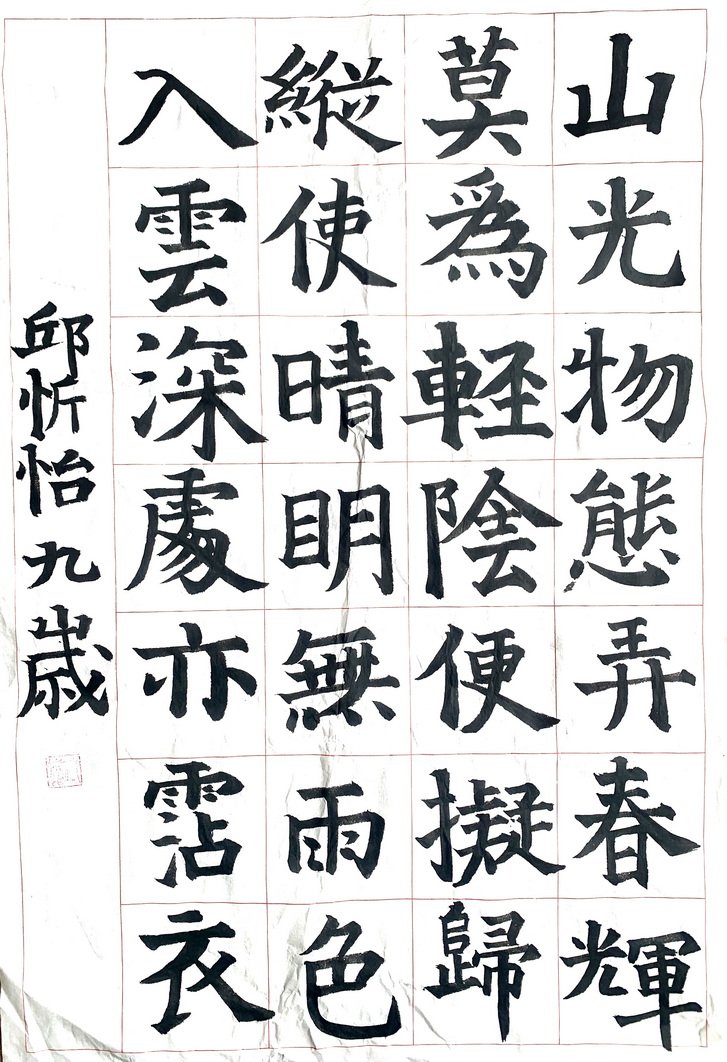 山光物態弄春輝
莫為輕陰便擬歸
縱使晴明無雨色
入雲深處亦霑衣
邱忻怡九歲